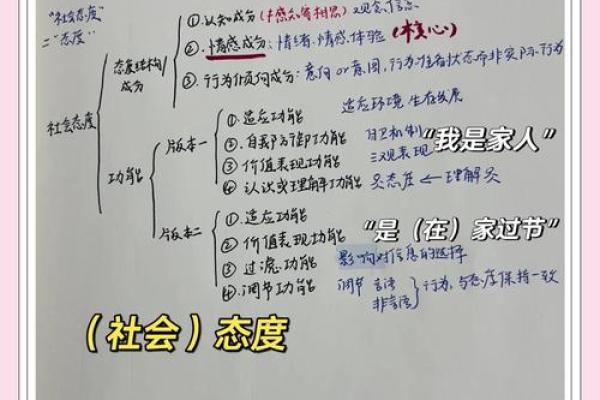 "社会态度"
="态度"
社会态度
态度结构/成分
①.认知成分(才感知客相思)
观念信念
②.情感成分:情绪.情感.体验(核心)
③.行为倾向成分:意向or意图,行为准备状态而非实际行为
功能
版本一
①.适应功能 适应环境 生存发展
②.自我防御功能 自卫机制
③价值表现功能 三观表现
④认识或理解功能 灵态度←理解灵
"我是家人"
版本二
①.适应功能
②价值表现功能
③过滤功能 影响对信息的选择
④.调节功能 调节 言语 非言语 } 行为,与态度保持一致
"是(在)家过节"
(社会)态度